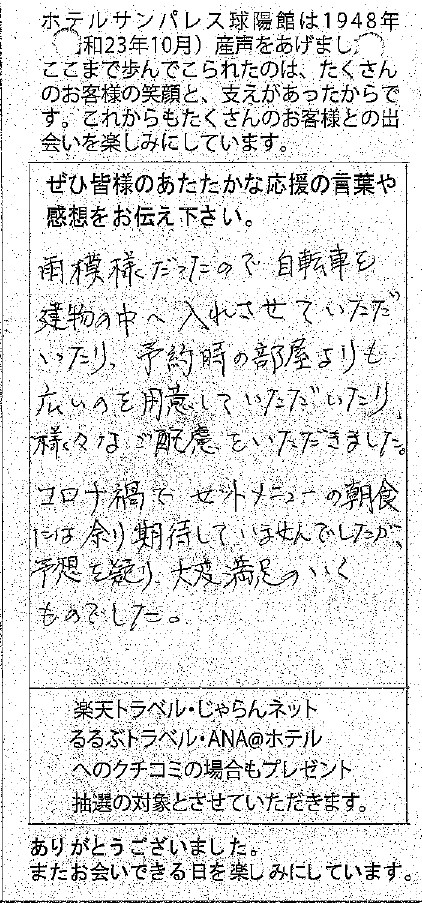 ホテルサンパレス球陽館は1948年
和23年10月）産声をあげまし
ここまで歩んでこられたのは、たくさん
のお客様の笑顔と、支えがあったからで
す。これからもたくさんのお客様との出
会いを楽しみにしています。
ぜひ皆様のあたたかな応援の言葉や
感想をお伝え下さい。
雨模様だったので自転車を
建物の中へ入れさせていただ
いたり、予約時の部屋よりも
広いのを用意していただいたり、
様々なご配慮をいただきました。
コロナ禍でセットメニューの朝食
には余り期待していませんでしたが、
予想を 大変満足のいく
ものでした。
楽天トラベル・じゃらんネット
るるぶトラベル・ANA@ホテル
へのクチコミの場合もプレゼント
抽選の対象とさせていただきます。
ありがとうございました。
またお会いできる日を楽しみにしています。